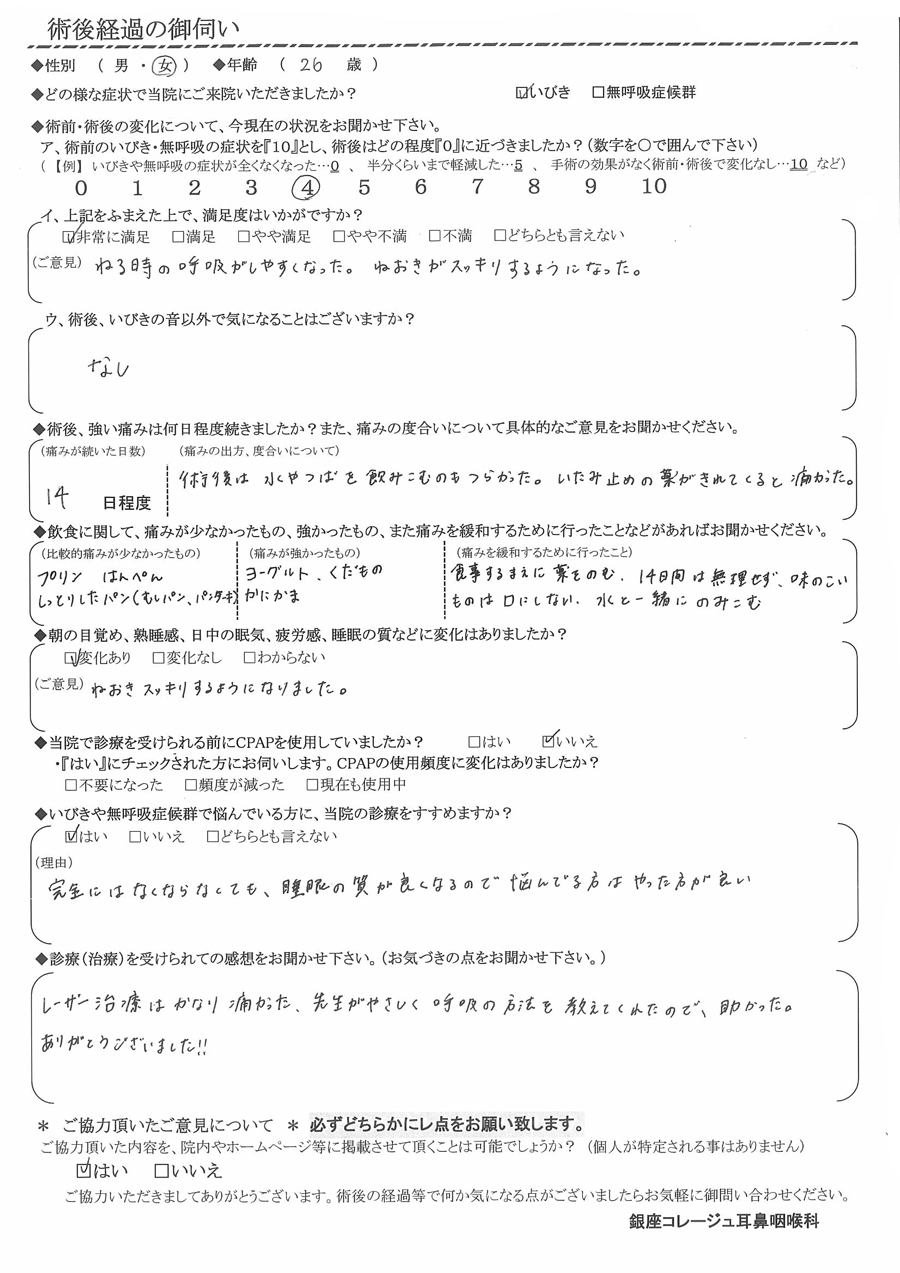 術後経過の御伺い
◆性別 ( 男 ・ 女 ) ◆年齢 ( 26 歳 )
◆どの様な症状で当院にご来院いただきましたか? ☑いびき □無呼吸症候群
◆術前・術後の変化について、今現在の状況をお聞かせ下さい。
ア、術前のいびき・無呼吸の症状を『10』とし、術後はどの程度『0』に近づきましたか?(数字を○で囲んで下さい)
(【例】いびきや無呼吸の症状が全くなくなった…0 、 半分くらいまで軽減した…5 、 手術の効果がなく術前・術後で変化なし…10 など)
0 1 2 3 ④ 5 6 7 8 9 10
イ、上記をふまえた上で、満足度はいかがですか?
☑非常に満足 □満足 □やや満足 □やや不満 □不満 □どちらとも言えない
(ご意見) ねる時の呼吸がしやすくなった。 ねおきがスッキリするようになった。
ウ、術後、いびきの音以外で気になることはございますか?
なし
◆術後、強い痛みは何日程度続きましたか?また、痛みの度合いについて具体的なご意見をお聞かせください。
(痛みが続いた日数) (痛みの出方、度合いについて)
術後は水やつばを飲みこむのもつらかった。いたみ止めの薬がきれてくると痛かった。
14 日程度
◆飲食に関して、痛みが少なかったもの、強かったもの、また痛みを緩和するために行ったことなどがあればお聞かせください。
(比較的痛みが少なかったもの) (痛みが強かったもの) (痛みを緩和するために行ったこと)
プリン はんぺん ヨーグルト、くだもの 食事するまえに薬をのむ、14日間は無理せず、味のこい
しっとりしたパン(むしパン、パンケーキ) かにかま ものは口にしない、水と一緒にのみこむ
◆朝の目覚め、熟睡感、日中の眠気、疲労感、睡眠の質などに変化はありましたか?
☑変化あり □変化なし □わからない
(ご意見) ねおきスッキリするようになりました。
◆当院で診療を受けられる前にCPAPを使用していましたか? □はい ☑いいえ
・『はい』にチェックされた方にお伺いします。CPAPの使用頻度に変化はありましたか?
□不要になった □頻度が減った □現在も使用中
◆いびきや無呼吸症候群で悩んでいる方に、当院の診療をすすめますか?
☑はい □いいえ □どちらとも言えない
(理由)
完全にはなくならなくても、睡眠の質が良くなるので悩んでる方はやった方が良い
◆診療(治療)を受けられての感想をお聞かせ下さい。(お気づきの点をお聞かせ下さい。)
レーザー治療はかなり痛かった、先生がやさしく呼吸の方法を教えてくれたので、助かった。
ありがとうございました!!
＊ ご協力頂いたご意見について ＊ 必ずどちらかにレ点をお願い致します。
ご協力頂いた内容を、院内やホームページ等に掲載させて頂くことは可能でしょうか? (個人が特定される事はありません)
☑はい □いいえ
ご協力いただきましてありがとうございます。術後の経過等で何か気になる点がございましたらお気軽に御問い合わせください。
銀座コレージュ耳鼻咽喉科